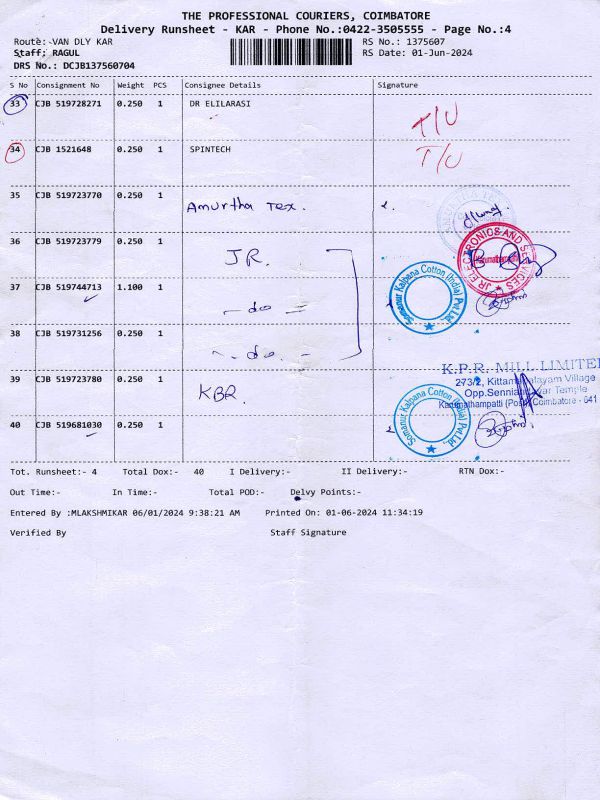 THE PROFESSIONAL COURIERS, COIMBATORE
Delivery Runsheet - KAR - Phone No.:0422-3505555 - Page No.:4
Route:-VAN DLY KAR
RS No.: 1375607
Staff: RAGUL
RS Date: 01-Jun-2024
DRS No.: DCJB137560704
S No Consignment No Weight PCS Consignee Details Signature
33 CJB 519728271 0.250 1 DR ELILARASI T/U
34 CJB 1521648 0.250 1 SPINTECH T/U
35 CJB 519723770 0.250 1 Amurtha Tex.
36 CJB 519723779 0.250 1 JR.
JR ELECTRONICS AND SERVICES
37 CJB 519744713 1.100 1 - do -
Somanur Kalpana Cotton (India) Pvt Ltd
38 CJB 519731256 0.250 1 - do. -
39 CJB 519723780 0.250 1 KBR.
K.P.R. MILL LIMITE
273/2, Kittam Village
Opp.Sennia Temple
(Post) Coimbatore - 641
40 CJB 519681030 0.250 1
Somanur Kalpana Cotton (India) Pvt Ltd
Tot. Runsheet:- 4 Total Dox:- 40 I Delivery:- II Delivery:- RTN Dox:-
Out Time:- In Time:- Total POD:- Delvy Points:-
Entered By :MLAKSHMIKAR 06/01/2024 9:38:21 AM Printed On: 01-06-2024 11:34:19
Verified By Staff Signature